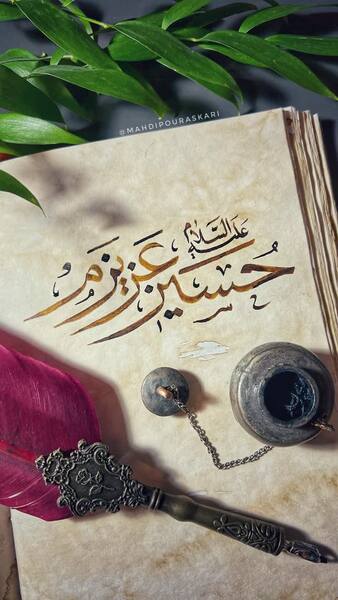 @MAHDIPOURASKARI
حسین عزیزم
علیه السلام